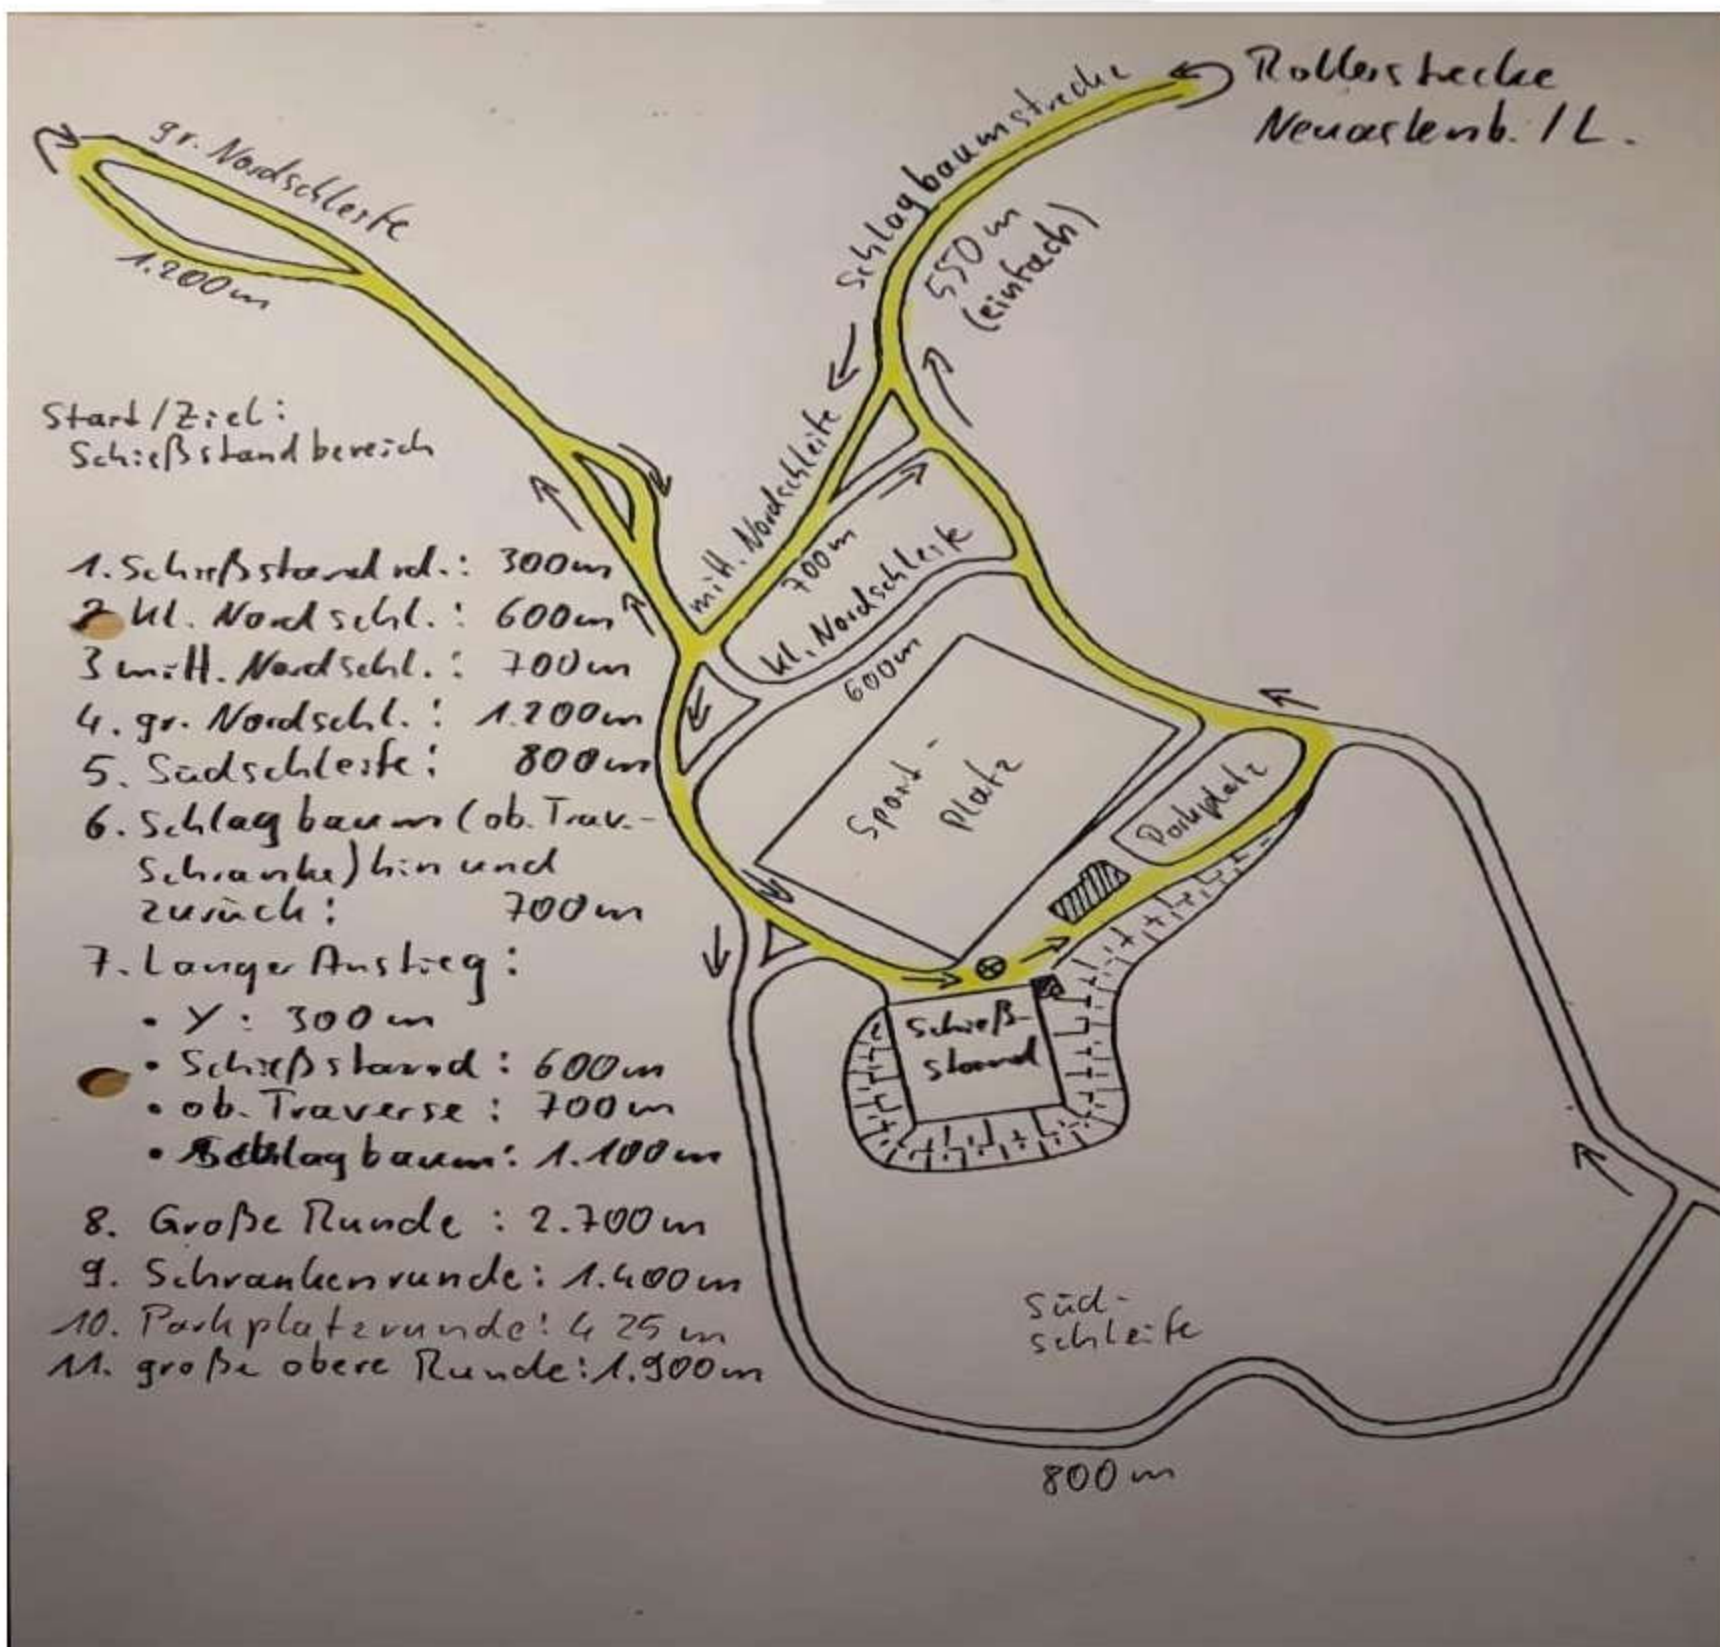 Rollerstrecke
Neuastenb. / L.
Schlagbaumstrecke
550 m
(einfach)
gr. Nordschleife
1.200m
mitt. Nordschleife
700m
kl. Nordschleife
600m
Sport-
Platz
Parkplatz
Schieß-
stand
Süd-
schleife
800 m
Start/Ziel:
Schießstandbereich
1. Schießstandrd.: 300m
2 kl. Nordschl.: 600m
3 mitt. Nordschl.: 700m
4. gr. Nordschl.: 1.200m
5. Südschleife: 800m
6. Schlagbaum (ob. Trav.-
Schranke) hin und
zurück: 700m
7. Langer Anstieg:
• Y: 300m
• Schießstand: 600m
• ob. Traverse: 700m
• Schlagbaum: 1.100m
8. Große Runde: 2.700m
9. Schrankenrunde: 1.400m
10. Parkplatzrunde: 425m
11. große obere Runde: 1.900m